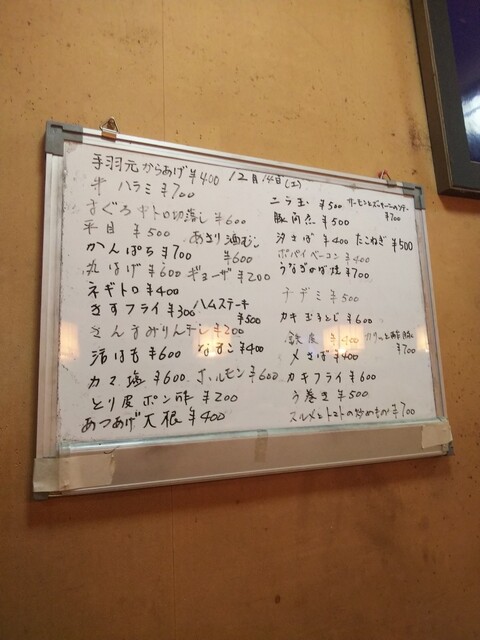 手羽元からあげ ¥400 12月14日(土)
牛ハラミ ¥700
まぐろ中トロ切落し ¥600
平目 ¥500 あさり酒むし ¥600
かんぱち ¥700
丸はげ ¥600 ギョーザ ¥200
ネギトロ ¥400
きすフライ ¥300 ハムステーキ ¥500
さんまみりん干し ¥200
活はも ¥600 なまこ ¥400
カマ塩 ¥600 ホルモン ¥600
とり皮ポン酢 ¥200
あつあげ大根 ¥400
ニラ玉 ¥500 ¥700
豚角煮 ¥500
汐さば ¥400 たこねぎ ¥500
ポパイベーコン ¥400
うなぎかば焼 ¥700
チヂミ ¥500
カキ玉子とじ ¥600
¥700
〆さば ¥400
カキフライ ¥600
う巻き ¥500
スルメとトマトの炒めもの ¥700